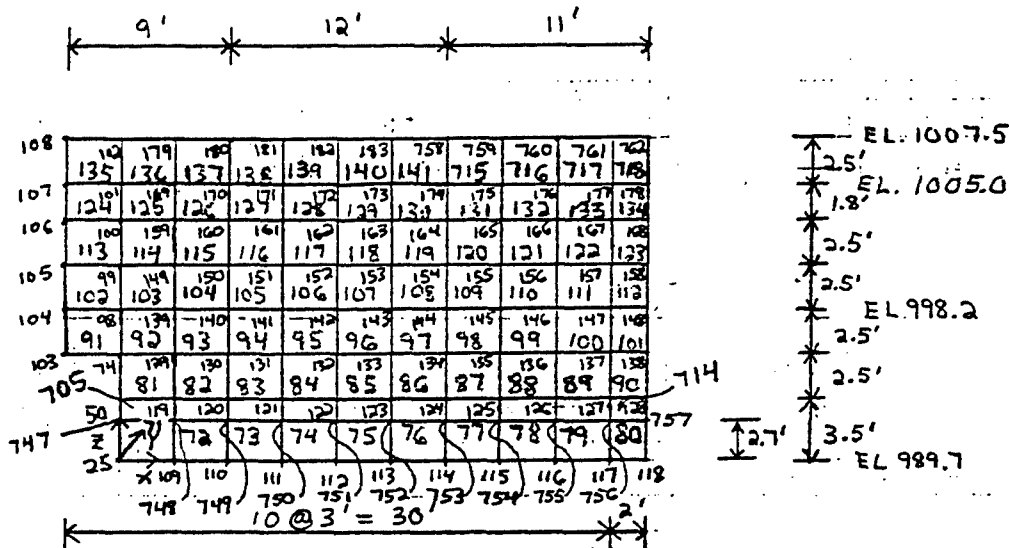 9' 12' 11'
108 112 179 180 181 182 183 758 759 760 761 762 EL. 1007.5
135 136 137 138 139 140 141 715 716 717 718 2.5'
107 101 169 170 171 172 173 174 175 176 177 178 EL. 1005.0
124 125 126 127 128 129 130 131 132 133 134 1.8'
106 100 159 160 161 162 163 164 165 166 167 168
113 114 115 116 117 118 119 120 121 122 123 2.5'
105 99 149 150 151 152 153 154 155 156 157 158
102 103 104 105 106 107 108 109 110 111 112 2.5'
104 98 139 140 141 142 143 144 145 146 147 148 EL. 998.2
91 92 93 94 95 96 97 98 99 100 101 2.5'
103 74 129 130 131 132 133 134 135 136 137 138
81 82 83 84 85 86 87 88 89 90 2.5'
705 714
50 119 120 121 122 123 124 125 126 127 128 757
747 Z 71 72 73 74 75 76 77 78 79 80 2.7' 3.5'
25 X 109 110 111 112 113 114 115 116 117 118 EL 989.7
748 749 750 751 752 753 754 755 756
10 @ 3' = 30' 2'